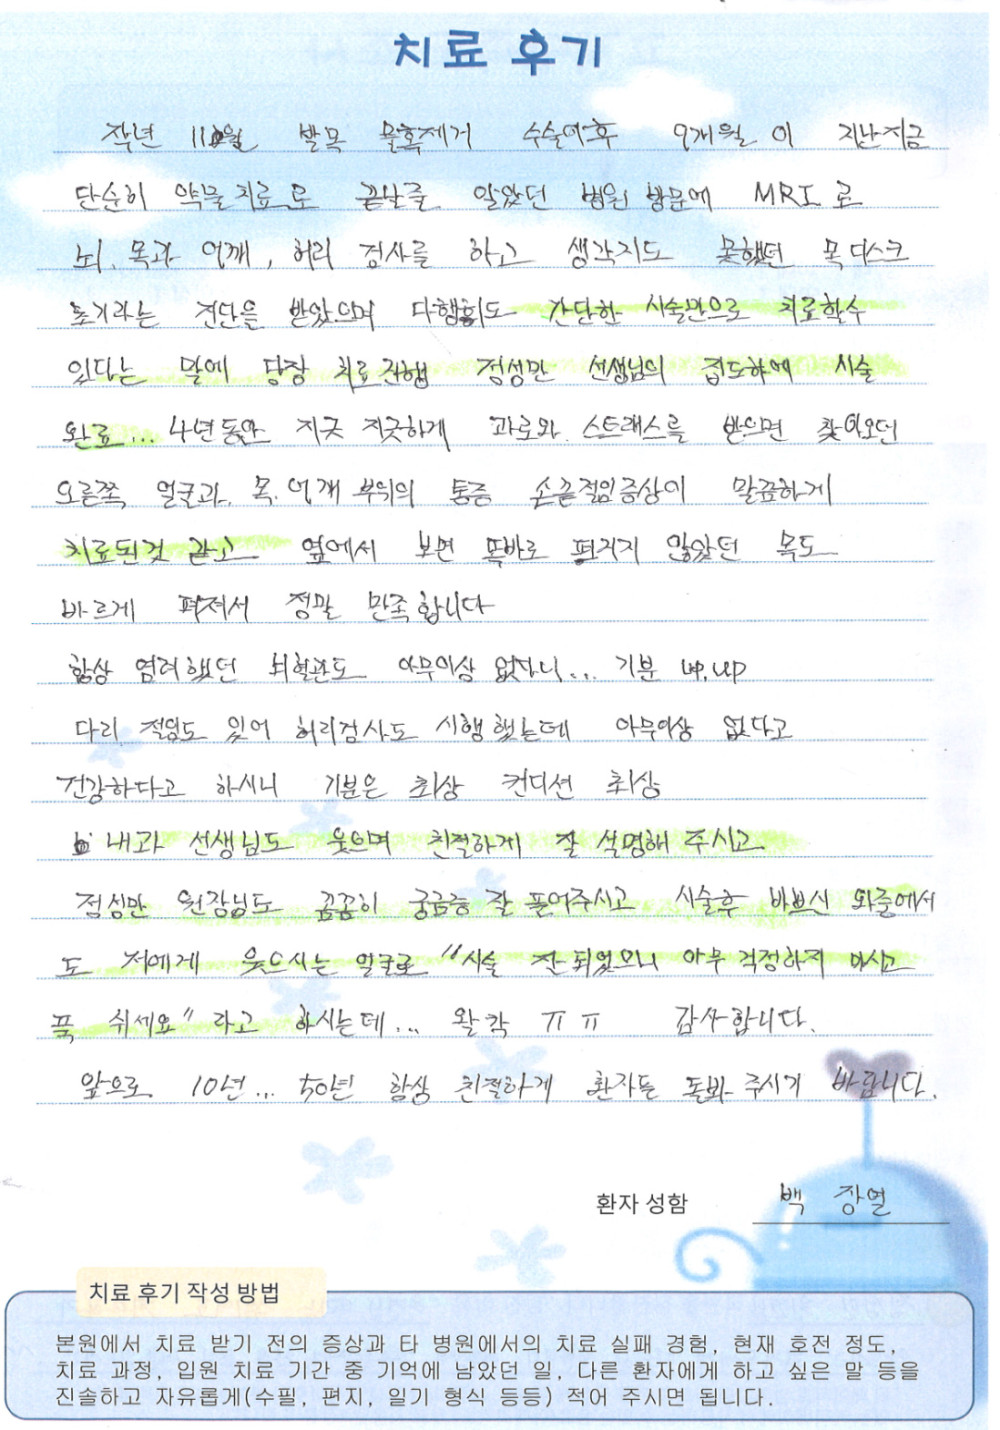 치료 후기
작년 11월 발목 물혹제거 수술이후 9개월 이 지난지금
단순히 약물치료로 끝날줄 알았던 병원 방문에 MRI 로
뇌, 목과 어깨, 허리 검사를 하고 생각지도 못했던 목디스크
초기라는 진단을 받았으며 다행히도 간단한 시술만으로 치료할수
있다는 말에 당장 치료진행 정성만 선생님의 집도하에 시술
완료... 4년동안 지긋 지긋하게 과로와 스트래스를 받으면 찾아오던
오른쪽 얼굴과, 목, 어깨 부위의 통증 손끝적임증상이 말끔하게
치료된것 같고 옆에서 보면 똑바로 펴지지 않았던 목도
바르게 펴져서 정말 만족합니다
항상 염려했던 뇌혈관도 아무이상 없다니... 기분 up, up
다리 절임도 있어 허리검사도 시행했는데 아무이상 없다고
건강하다고 하시니 기분은 최상 컨디션 최상
내과 선생님도 웃으며 친절하게 잘 설명해 주시고.
정성만 원장님도 꼼꼼히 궁금증 잘 풀어주시고 시술후 바쁘신 와중에서
도 저에게 웃으시는 얼굴로 "시술 잘되었으니 아무 걱정하지 마시고
푹 쉬세요" 라고 하시는데... 왈칵 ㅠㅠ 감사합니다.
앞으로 10년... 50년 항상 친절하게 환자들 돌봐 주시기 바랍니다.
환자 성함 백 장열
치료 후기 작성 방법
본원에서 치료 받기 전의 증상과 타 병원에서의 치료 실패 경험, 현재 호전 정도,
치료 과정, 입원 치료 기간 중 기억에 남았던 일, 다른 환자에게 하고 싶은 말 등을
진솔하고 자유롭게(수필, 편지, 일기 형식 등등) 적어 주시면 됩니다.